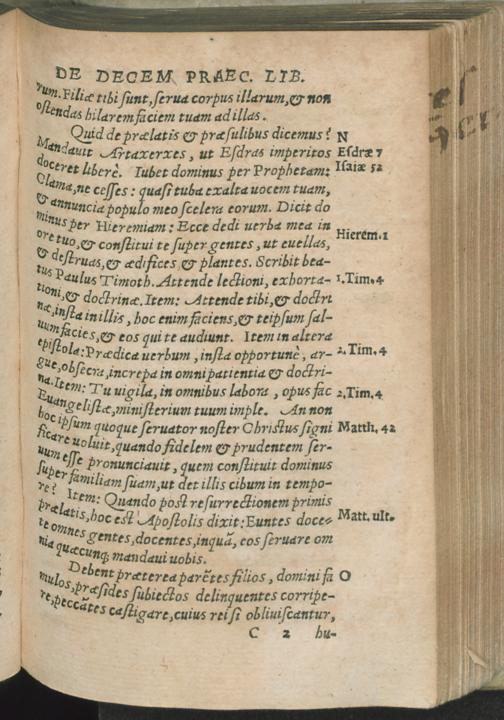 DE DECEM PRAEC. LIB.
rum. Filiæ tibi sunt, serua corpus illarum, & non
ostendas hilarem faciem tuam ad illas.
Quid de prælatis & præsulibus dicemus? N
Mandauit Artaxerxes, ut Esdras imperitos Esdræ 7
doceret liberè. Iubet dominus per Prophetam: Isaiæ 52
Clama, ne cesses: quasi tuba exalta uocem tuam,
& annuncia populo meo scelera eorum. Dicit do
minus per Hieremiam: Ecce dedi uerba mea in
ore tuo, & constitui te super gentes, ut euellas, Hierem. 1
& destruas, & ædifices & plantes. Scribit bea-
tus Paulus Timoth. Attende lectioni, exhorta- 1. Tim. 4
tioni, & doctrinæ. Item: Attende tibi, & doctri
næ, insta in illis, hoc enim faciens, & teipsum sal-
uum facies, & eos qui te audiunt. Item in altera
epistola: Prædica uerbum, insta opportunè, ar- 2. Tim. 4
gue, obsecra, increpa in omni patientia & doctri-
na. Item: Tu uigila, in omnibus labora, opus fac 2. Tim. 4
Euangelistæ, ministerium tuum imple. An non
hoc ipsum quoque seruator noster Christus signi Matth. 42
ficare uoluit, quando fidelem & prudentem ser-
uum esse pronunciauit, quem constituit dominus
super familiam suam, ut det illis cibum in tempo-
re? Item: Quando post resurrectionem primis
prælatis, hoc est Apostolis dixit: Euntes doce- Matt. ult.
te omnes gentes, docentes, inquã, eos seruare om
nia quæcunq; mandaui uobis.
Debent præterea parẽtes filios, domini fa O
mulos, præsides subiectos delinquentes corripe-
re, peccãtes castigare, cuius rei si obliuiscantur,
C 2 hu-